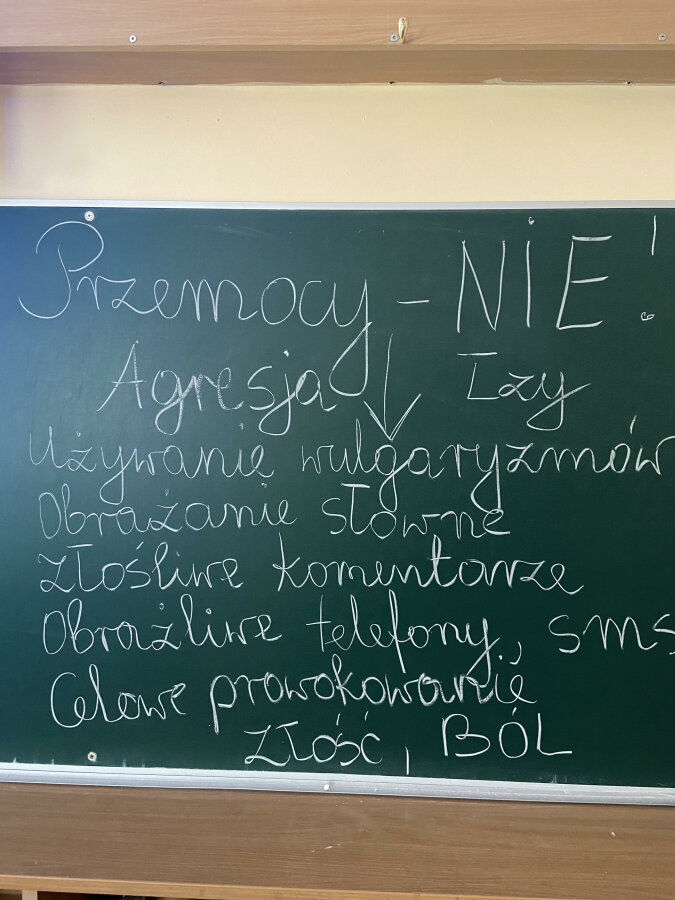 Przemocy - NIE!
Agresja ↓ Łzy
Używanie wulgaryzmów
Obrażanie słowne
złośliwe komentarze
Obraźliwe telefony, sms
Celowe prowokowanie
złość, BÓL